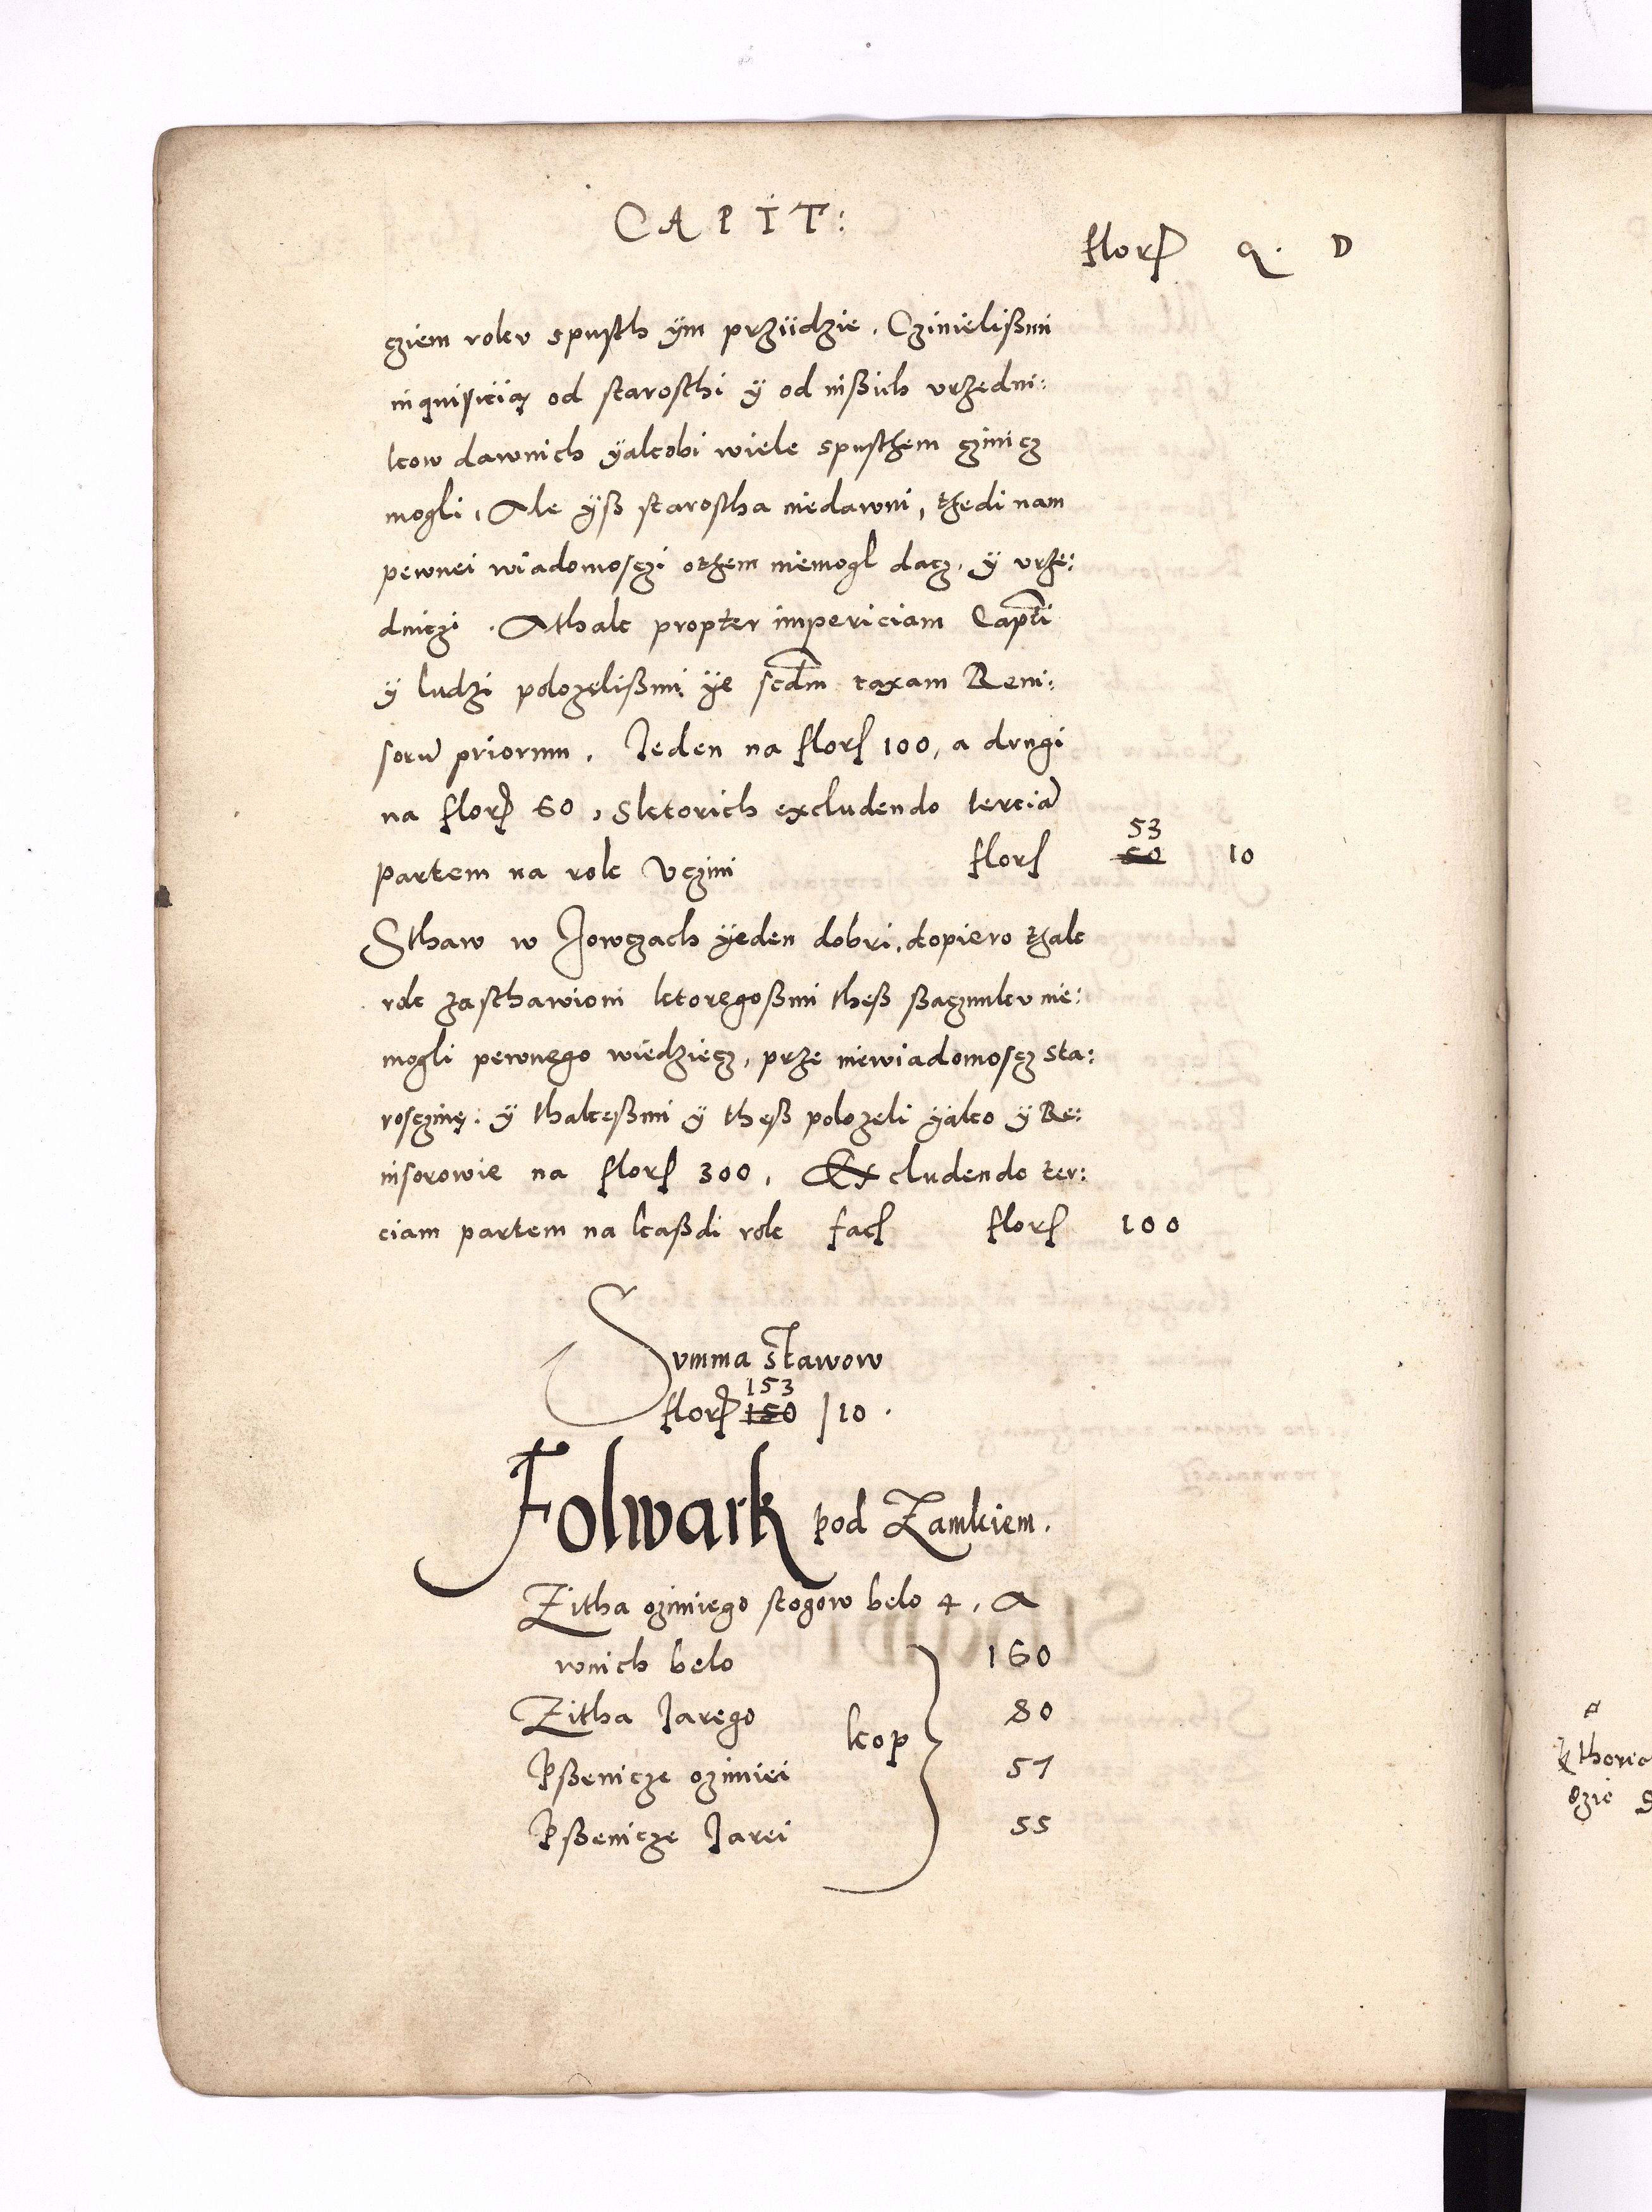 CAPIT:
flor[um] g. D
cziem rokv spusth ÿm prziidzie. Czinielißmi
inquisiciią od starosthi ÿ od nißich vrzedni:
kow dawnich ÿakobi wiele spusthem czinicz
mogli, Ale ÿß starostha niedawni, thedi nam
pewnei wiadomosczi othem niemogl dacz, ÿ vrze:
dniczi. Athak propter impericiam Capti
ÿ ludzi polozelißmi ÿe scdm taxam Revi:
soru priorum. Jeden na flor 100, a drugi
na flor 60, Sktorich excludendo tercia
partem na rok vczini flor 53 50 10
Sthaw w Jowczach ÿeden dobri, dopiero thak
rok zasthawioni ktoregoßmi theß ßaczunkv nie:
mogli pewnego wiedziecz, prze niewiadomoscz sta:
rosczinę: ÿ thakeßmi ÿ theß polozeli ÿako ÿ Re:
visorowie na flor 300, Excludendo ter:
ciam partem na kaßdi rok fac flor 100
Summa stawow
flor 153 150 /10.
Folwark pod Zamkiem.
Zitha oziniego stogow belo 4, A
wnich belo 160
Zitha Jarego kop 80
Pßenicze ozimiei 51
Pßenicze Jarei 55